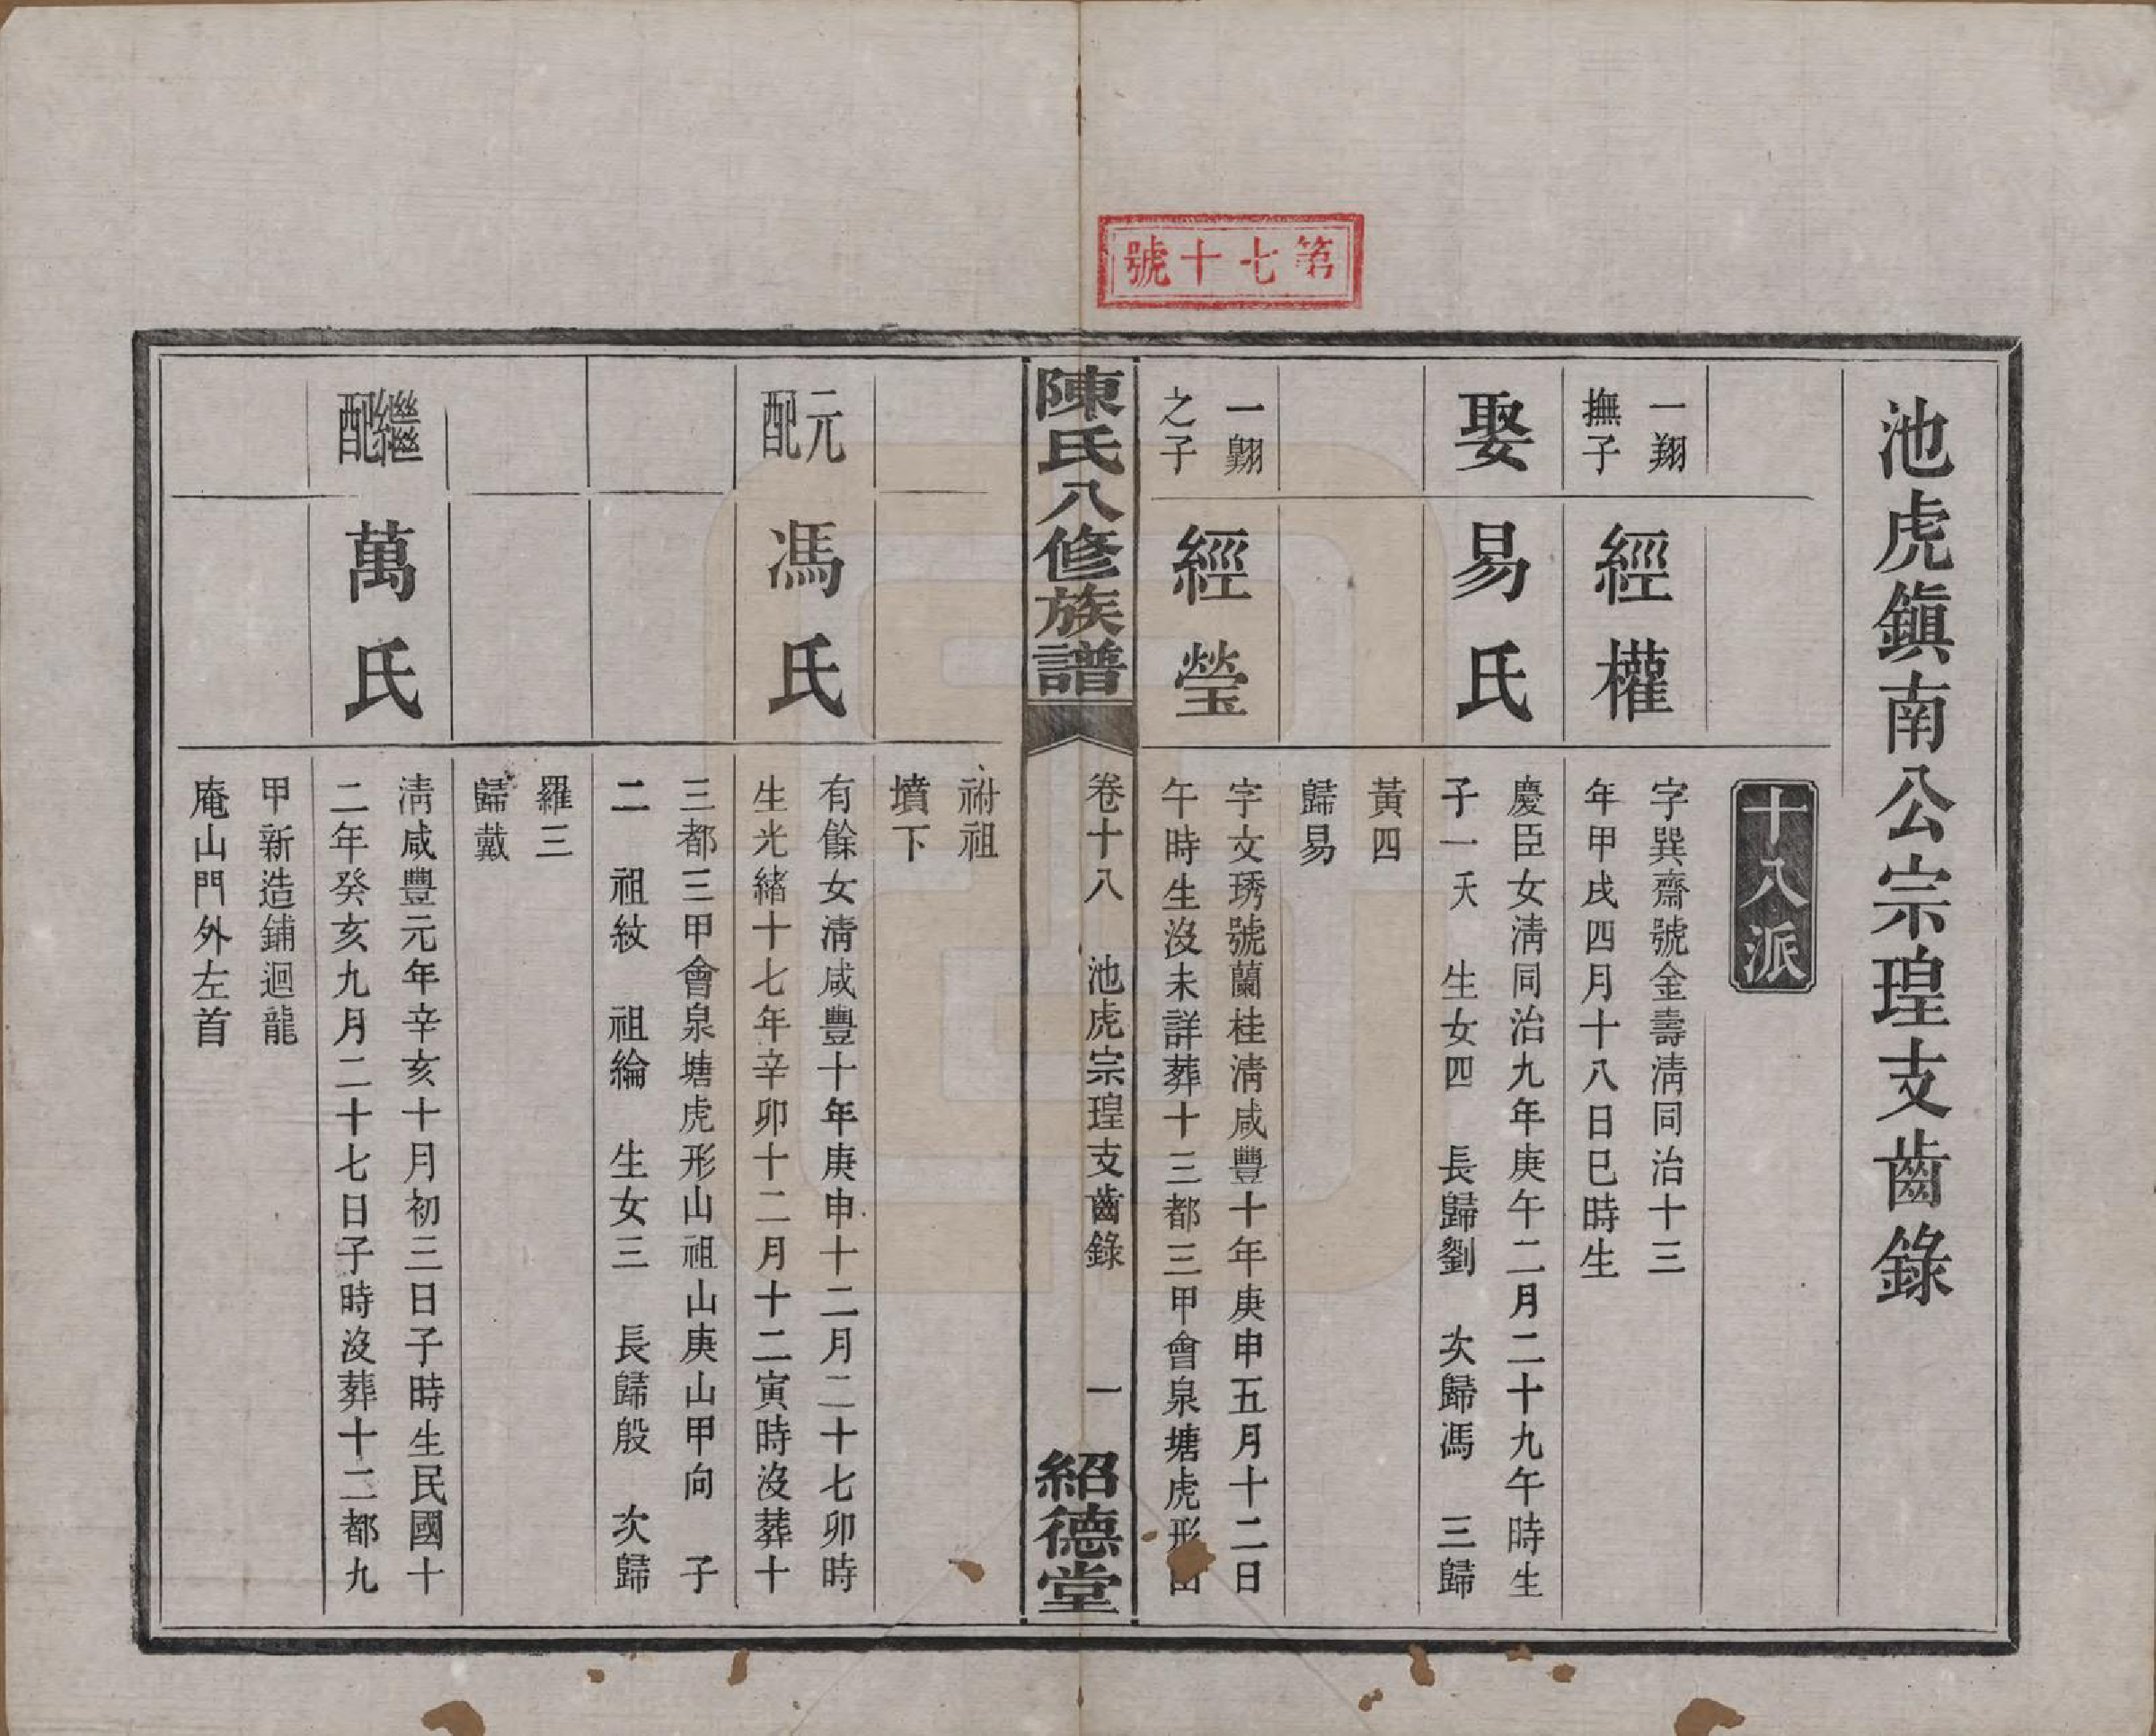 第七十號
池虎鎮南公宗瑝支齒錄
十八派
一翔
撫子
經權
字巽齋號金壽淸同治十三
年甲戌四月十八日巳時生
娶
易氏
慶臣女淸同治九年庚午二月二十九午時生
子一夭　生女四　長歸劉　次歸馮　三歸
黃四
歸易
一翺
之子
經瑩
字文琇號蘭桂淸咸豐十年庚申五月十二日
午時生沒未詳葬十三都三甲會泉塘虎形山
陳氏八修族譜
卷十八　池虎宗瑝支齒錄　一
紹德堂
祔祖
墳下
元配
馮氏
有餘女淸咸豐十年庚申十二月二十七卯時
生光緒十七年辛卯十二月十二寅時沒葬十
三都三甲會泉塘虎形山祖山庚山甲向　子
二　祖紋　祖綸　生女三　長歸殷　次歸
羅三
歸戴
繼配
萬氏
淸咸豐元年辛亥十月初三日子時生民國十
二年癸亥九月二十七日子時沒葬十二都九
甲新造鋪迴龍
庵山門外左首